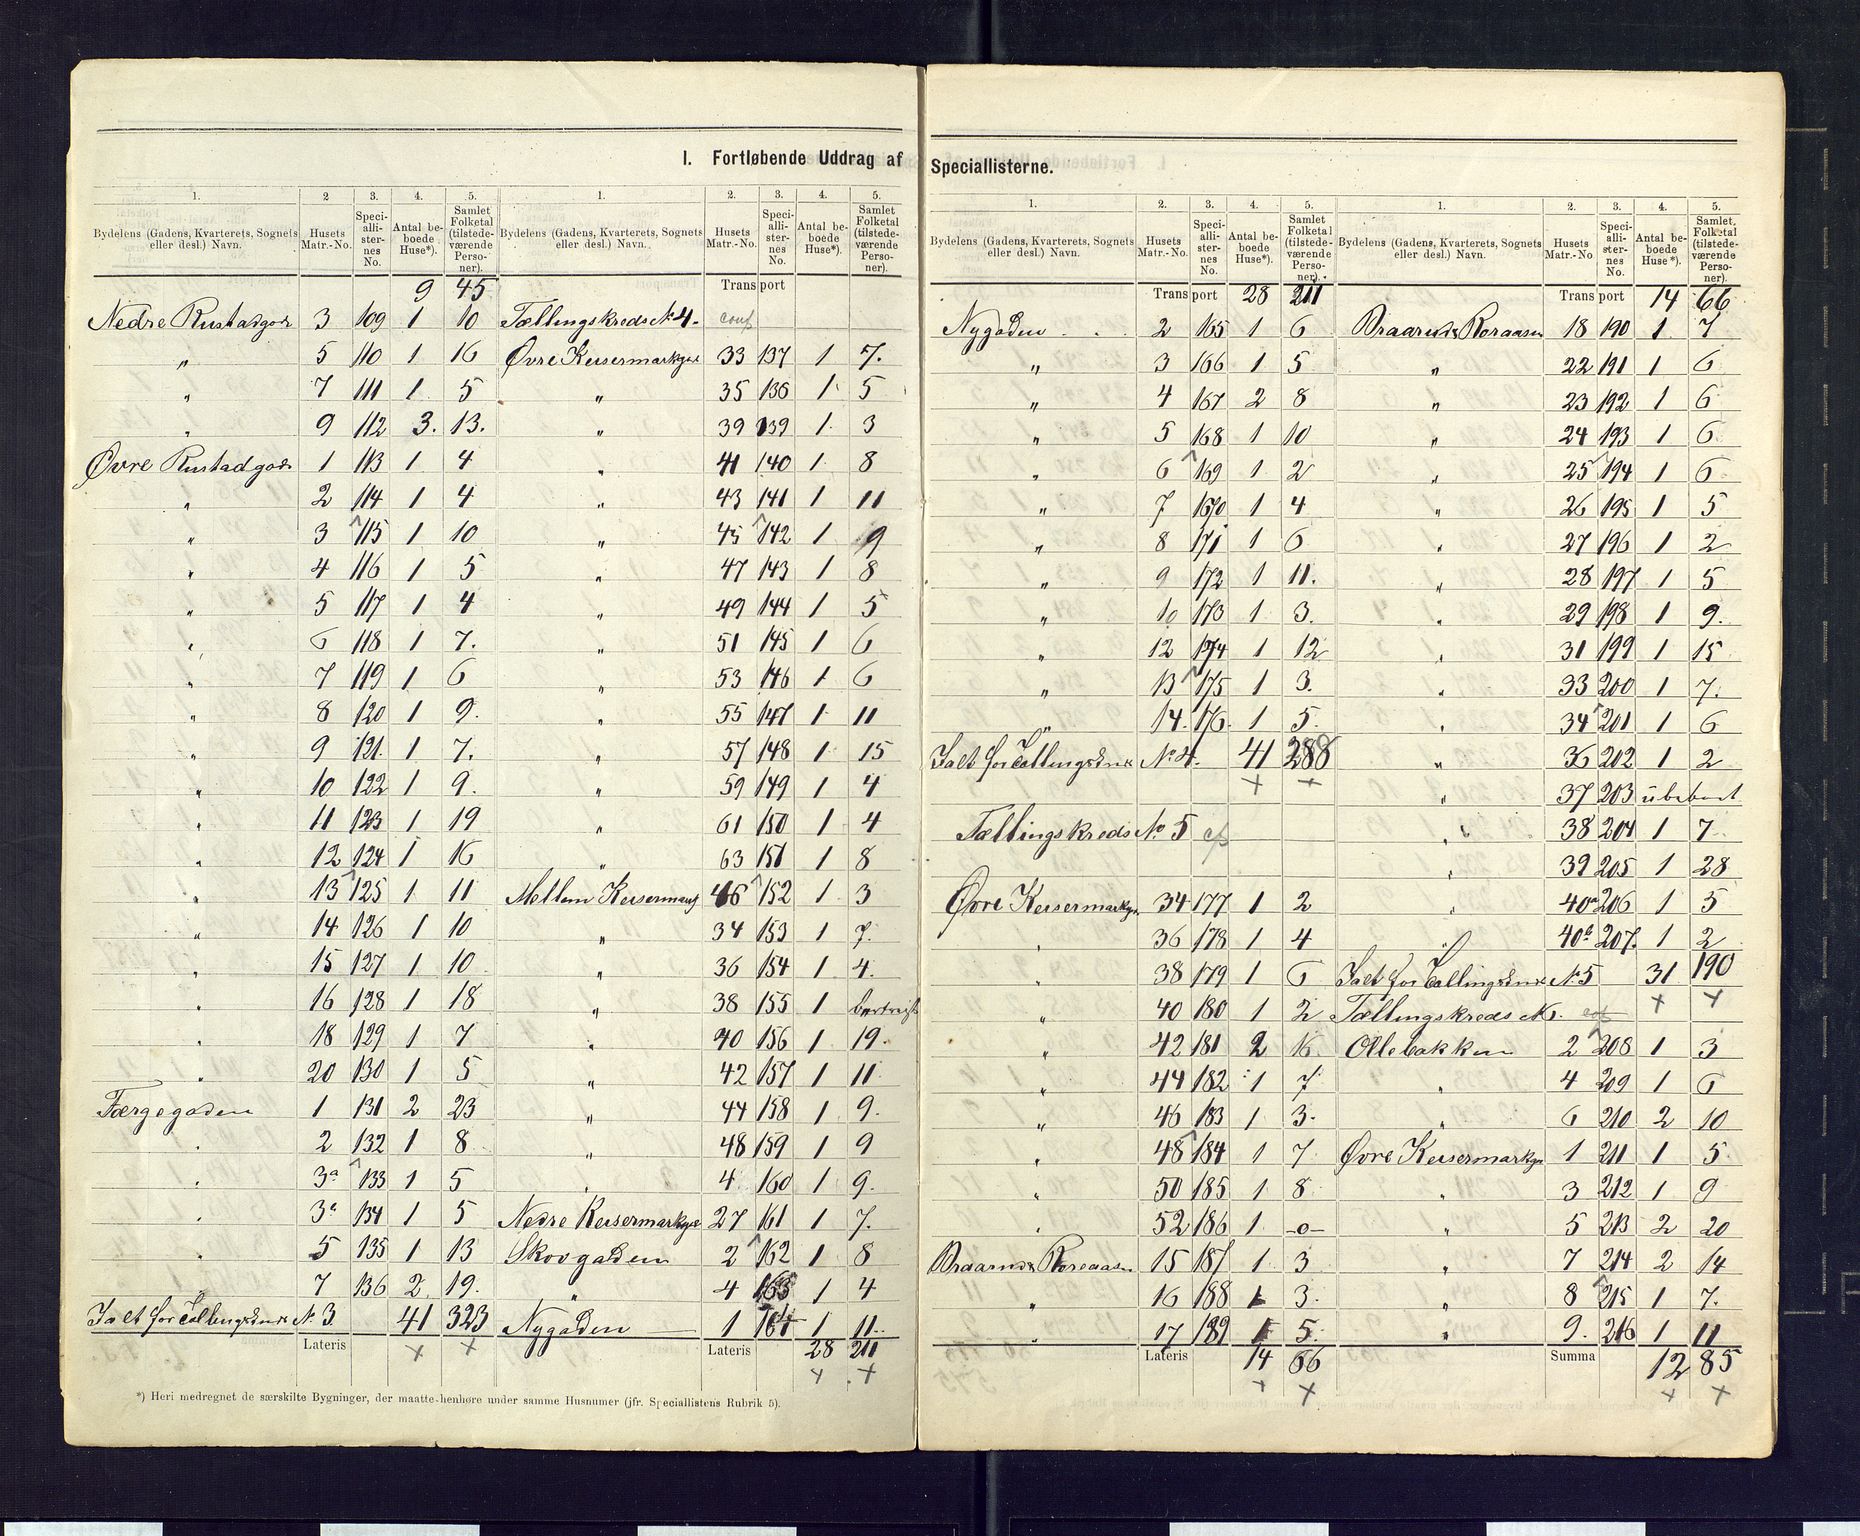 I. Fortløbende Uddrag af Speciallisterne.
1. 2 3. 4. 5.
Bydelens (Gadens, Kvarterets, Sognets eller desl.) Navn. Husets Matr.-No. Speciallisternes No. Antal beboede Huse*). Samlet Folketal (tilstedeværende Personer).
9 45
Nedre Rustadgade 3 109 1 10
" 5 110 1 16
" 7 111 1 5
" 9 112 3. 13.
Øvre Rustadgade 1 113 1 4
" 2 114 1 4
" 3 115 1 10
" 4 116 1 5
" 5 117 1 4
" 6 118 1 7.
" 7 119 1 6
" 8 120 1 9.
" 9 121 1 7.
" 10 122 1 9.
" 11 123 1 19
" 12 124 1 16
" 13 125 1 11
" 14 126 1 10
" 15 127 1 10
" 16 128 1 18
" 18 129 1 7
" 20 130 1 5
Færgegaden 1 131 2 23
" 2 132 1 8
" 3a 133 1 5
" 3a 134 1 5
" 5 135 1 13
" 7 136 2 19.
Ialt for Tællingskreds No 3. 41 323
Lateris
1. 2. 3. 4. 5.
Bydelens (Gadens, Kvarterets, Sognets eller desl.) Navn. Husets Matr.-No. Speciallisternes No. Antal beboede Huse*). Samlet Folketal (tilstedeværende Personer).
Transport
Tællingskreds No 4. conf
Øvre Keisermarkgade 33 137 1 7.
" 35 138 1 5
" 39 139 1 3
" 41 140 1 8
" 43 141 1 11
" 45 142 1 9
" 47 143 1 8
" 49 144 1 5
" 51 145 1 6
" 53 146 1 6
" 55 147 1 11
" 57 148 1 15
" 59 149 1 4
" 61 150 1 4
" 63 151 1 8
Mellem Keisermarkg 152 1 3
" 34 153 1 7.
" 36 154 1 4.
" 38 155 1 bortreist
" 40 156 1 19.
" 42 157 1 11
" 44 158 1 9.
" 48 159 1 9
" 4 160 1 9.
Nedre Keisermarkgade 27 161 1 7.
Skovgaden 2 162 1 8
" 4 163 1 4
Nygaden 1 164 1 11
Lateris 28 211
*) Heri medregnet de særskilte Bygninger, der maatte henhøre under samme Husnumer (jfr. Speciallistens Rubrik 5).
1. 2. 3. 4. 5.
Bydelens (Gadens, Kvarterets, Sognets eller desl.) Navn. Husets Matr.-No. Speciallisternes No. Antal beboede Huse*). Samlet Folketal (tilstedeværende Personer).
Transport 28 211
Nygaden 2 165 1 6
" 3 166 1 5
" 4 167 2 8
" 5 168 1 10
" 6 169 1 2
" 7 170 1 4
" 8 171 1 6
" 9 172 1 11.
" 10 173 1 3.
" 12 174 1 12
" 13 175 1 3.
" 14. 176. 1 5.
Ialt for Tællingskreds No 4. 41 288
Tællingskreds No 5 cf
Øvre Keisermarkgade 34 177 1 2
" 36 178 1 4
" 38 179 1 6
" 40 180 1 2
" 42 181 2 16
" 44 182 1 7
" 46 183 1 3.
" 48 184 1 7
" 50 185 1 8
" 52 186 1 -0-
Braarud & Roraasen 15 187 1 3
" 16 188 1 3.
" 17 189 1 5.
Lateris 14 66
1. 2. 3. 4. 5.
Bydelens (Gadens, Kvarterets, Sognets eller desl.) Navn. Husets Matr.-No Speciallisternes No. Antal beboede Huse*). Samlet Folketal (tilstedeværende Personer).
Transport 14 66
Braarud & Roraasen 18 190 1 7
" 22 191 1 6
" 23 192 1 6
" 24 193 1 6
" 25 194 1 6
" 26 195 1 5
" 27 196 1 2
" 28 197 1 5
" 29 198 1 9.
" 31 199 1 15
" 33 200 1 7.
" 34 201 1 6
" 36 202 1 2
" 37 203 ubeboet
" 38 204 1 7
" 39 205 1 28
" 40a 206 1 5
" 40b 207. 1 2
Ialt for Tællingskreds No 5 31 190
Tællingskreds No 6. cof
Ollebakken 2 208 1 3
" 4 209 1 6
" 6 210 2 10
Øvre Keisermarkgd 1 211 1 5
" 3 212 1 9
" 5 213 2 20
" 7 214 2 14
" 8 215 1 7.
" 9. 216 1 11
Summa 12 85